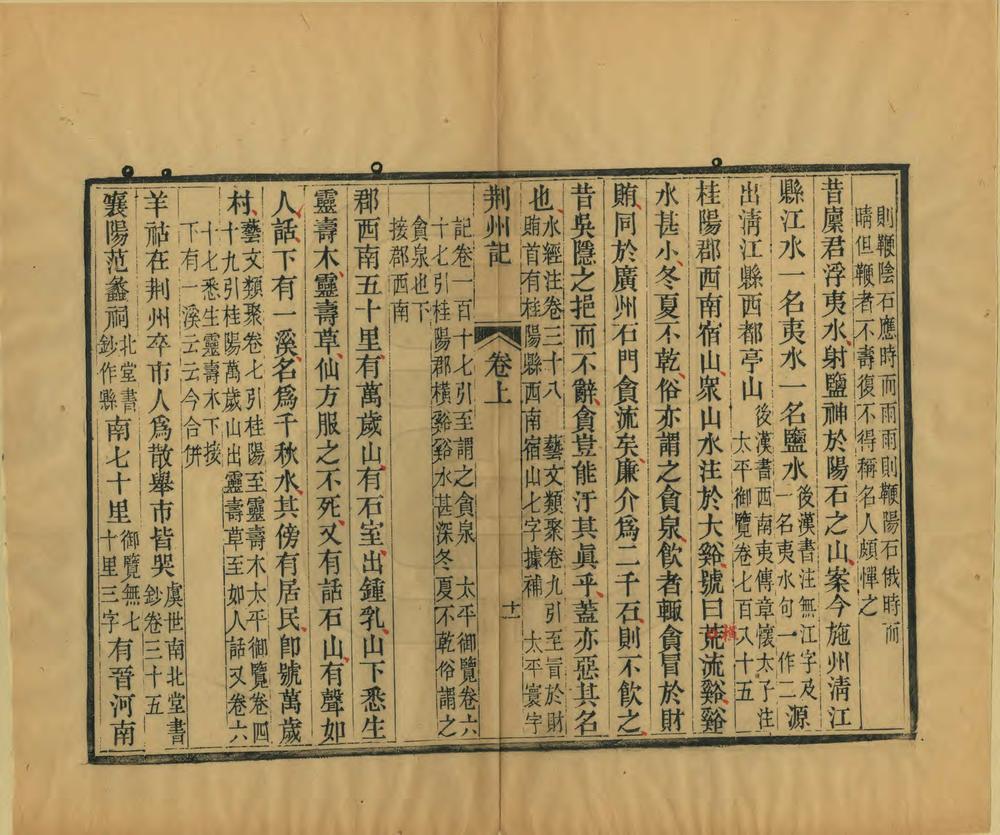 則鞭陰石應時而雨雨則鞭陽石俄時而
晴但鞭者不壽復不得稱名人頗憚之
昔廩君浮夷水射鹽神於陽石之山案今施州淸江
縣江水一名夷水一名鹽水後漢書注無江字及
一名夷水句一作二源
出淸江縣西都亭山後漢書西南夷傳章懷太子注
太平御覽卷七百八十五
桂陽郡西南宿山衆山水注於大谿號曰荒流谿谿
橫
水甚小冬夏不乾俗亦謂之貪泉飮者輒貪冒於財
賄同於廣州石門貪流矣廉介爲二千石則不飮之
昔吳隱之挹而不辭貪豈能汙其眞乎蓋亦惡其名
也水經注卷三十八 藝文類聚卷九引至旨於財
賄首有桂陽縣西南宿山七字據補 太平寰宇
荆州記 卷上 十一
記卷一百十七引至謂之貪泉 太平御覽卷六
十七引桂陽郡橫谿谿水甚深冬夏不乾俗謂之
貪泉也下
接郡西南
郡西南五十里有萬歲山有石室出鍾乳山下悉生
靈壽木靈壽草仙方服之不死又有話石山有聲如
人話下有一溪名爲千秋水其傍有居民卽號萬歲
村藝文類聚卷七引桂陽至靈壽木太平御覽卷四
十九引桂陽萬歲山出靈壽草至如人話又卷六
十七悉生靈壽木下接
下有一溪云云今合併
羊祜在荆州卒市人爲散舉市皆哭虞世南北堂書
鈔卷三十五
襄陽范蠡祠北堂書
鈔作縣南七十里御覽無七
十里三字有晉河南